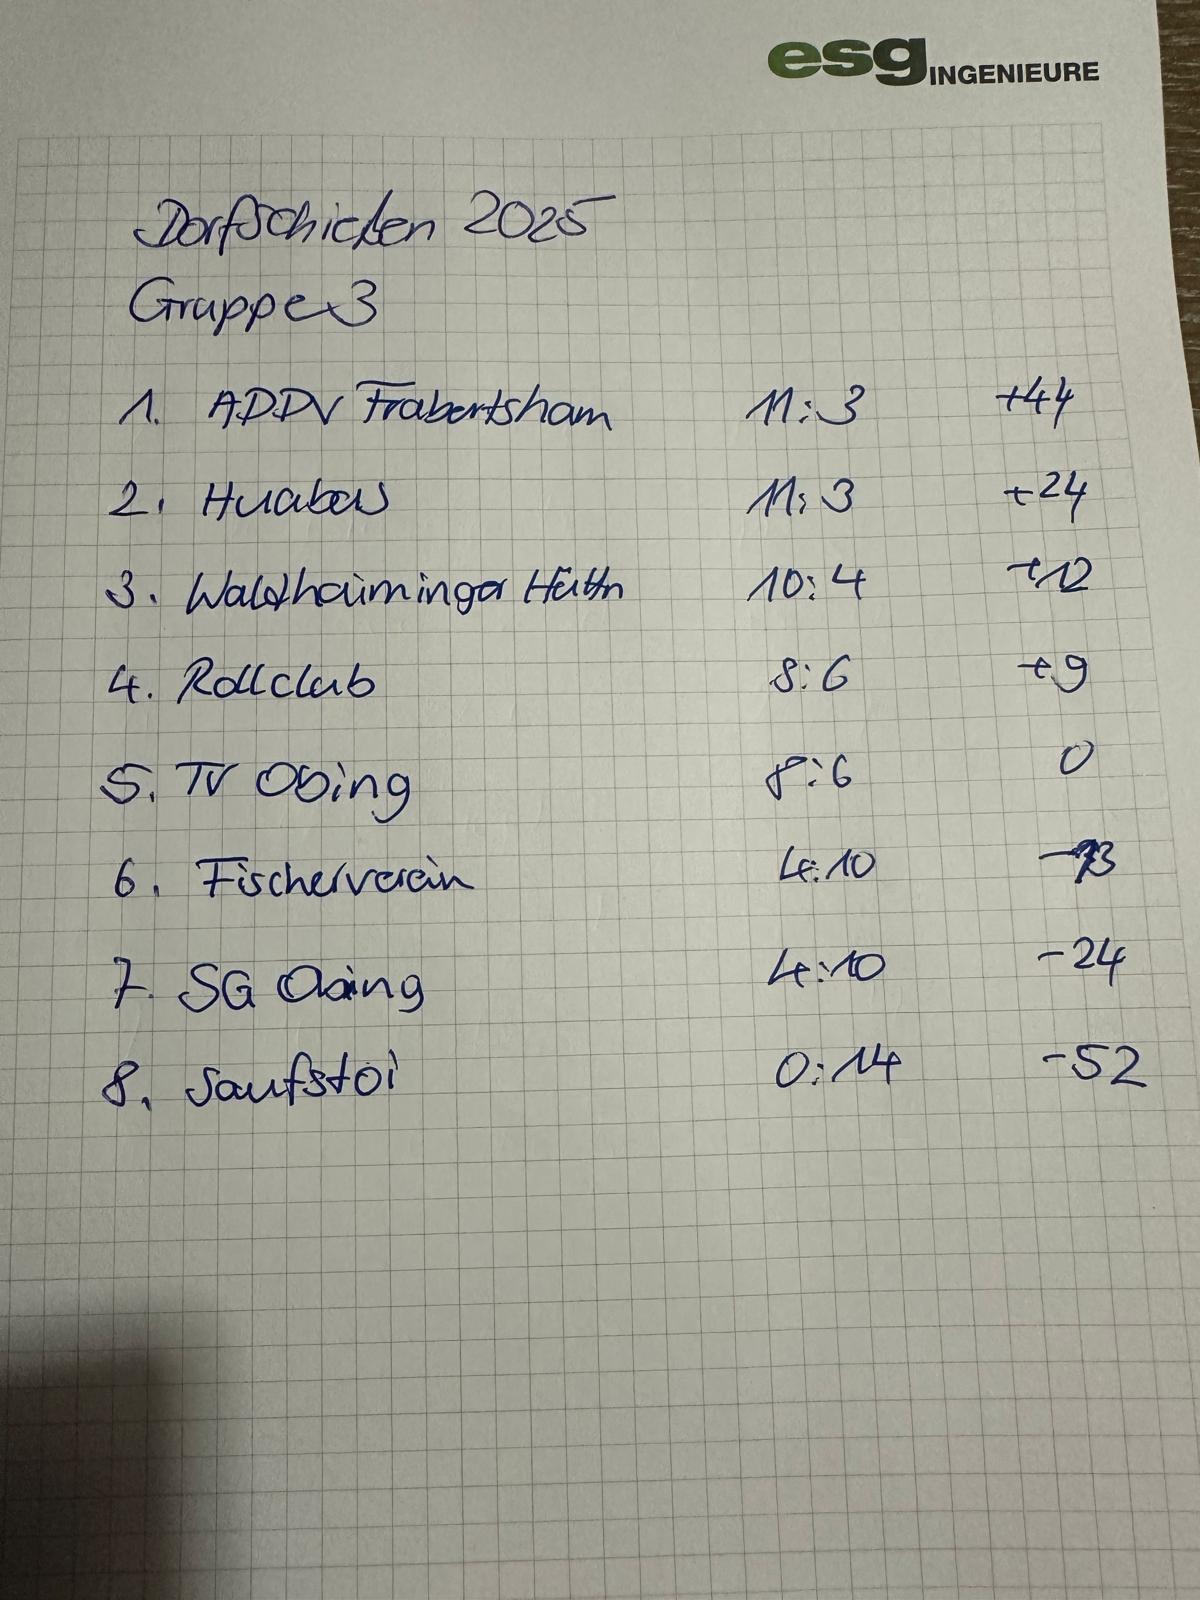 esg INGENIEURE
Dorfschießen 2025
Gruppe 3
1. ADDV Frabertsham 11:3 +44
2. Huabas 11:3 +24
3. Waldhaiminger Hüttn 10:4 +12
4. Rollclub 8:6 +9
5. TV Obing 8:6 0
6. Fischerverein 4:10
7. SG Obing 4:10 -24
8. Saufstoi 0:14 -52